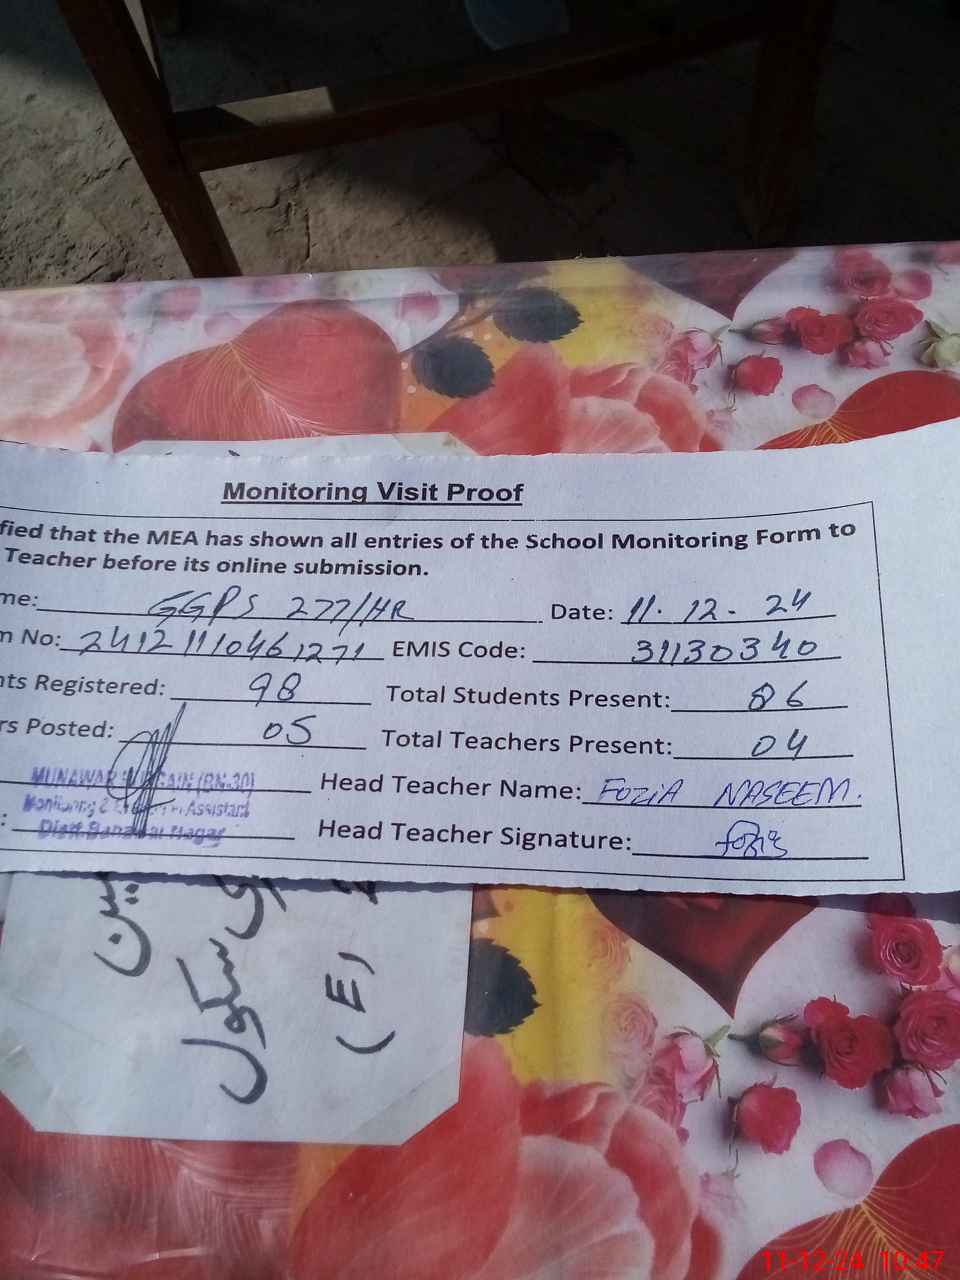 Monitoring Visit Proof
fied that the MEA has shown all entries of the School Monitoring Form to
Teacher before its online submission.
me: GGPS 277/HR Date: 11. 12 - 24
m No: 2412111046 1271 EMIS Code: 31130340
nts Registered: 98 Total Students Present: 86
rs Posted: 05 Total Teachers Present: 04
MUNAWAR (BN-30) Head Teacher Name: FOZIA NASEEM.
Assistant
: Head Teacher Signature:
سکول
11-12-24 10:47